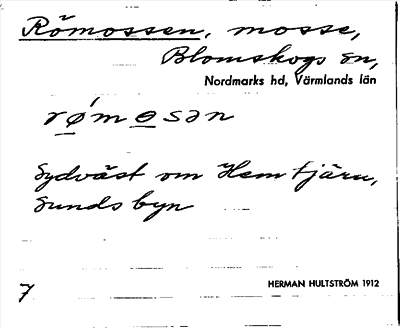 Römossen, mosse,
Blomskogs sn,
Nordmarks hd, Värmlands län
rǿmosən
Sydväst om Hemtjärn,
Sundsbyn
7
HERMAN HULTSTRÖM 1912